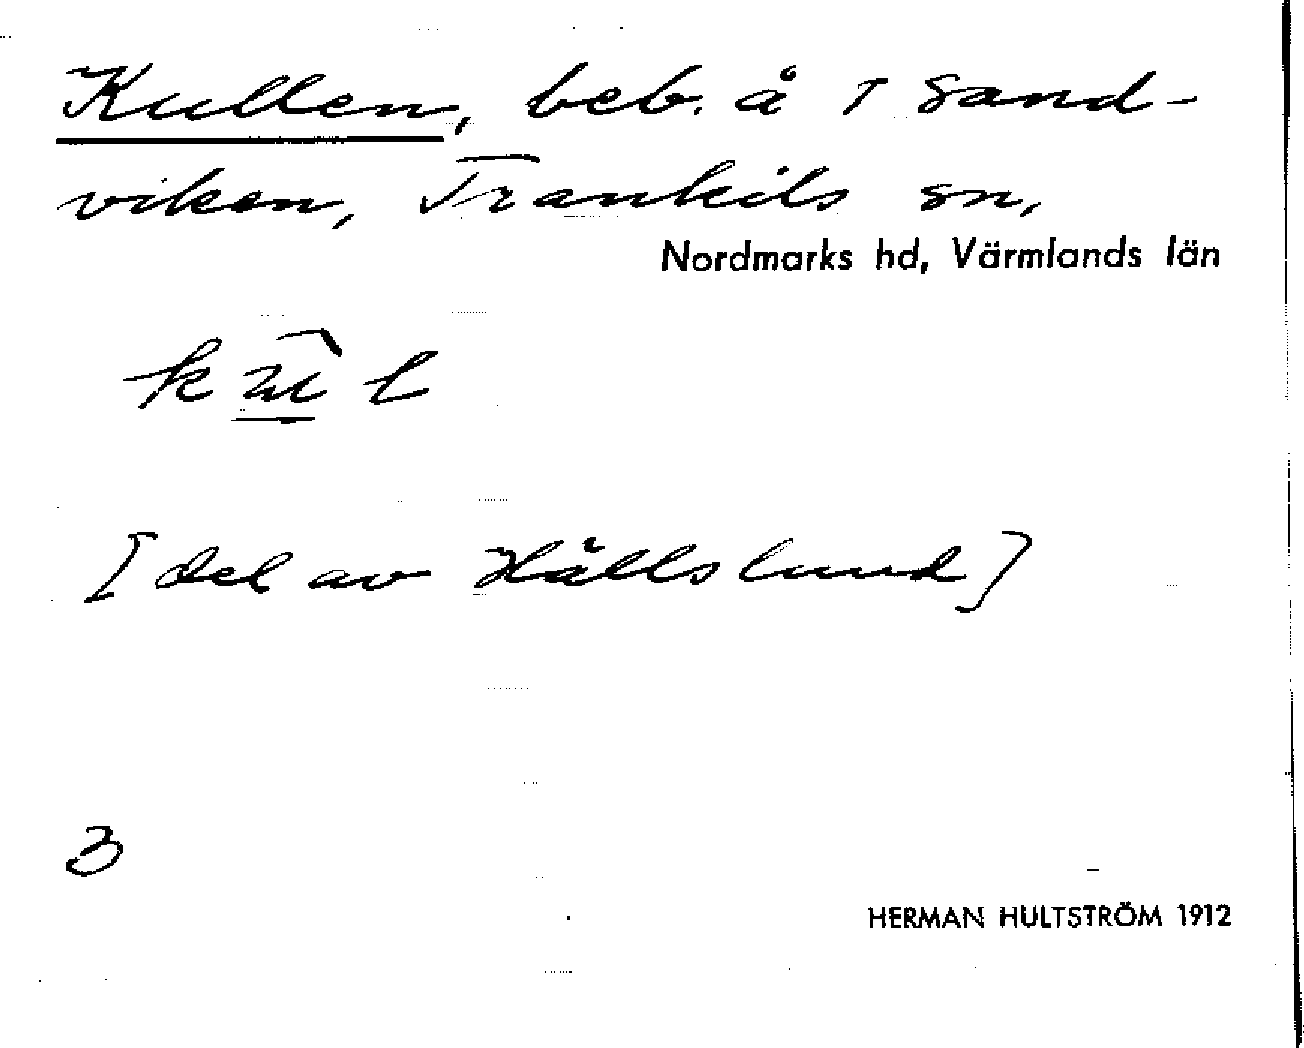 Kullen, beb. å 1 Sand-
viken, Trankils sn,
Nordmarks hd, Värmlands län
[del av Hällslund]
3
HERMAN HULTSTRÖM 1912